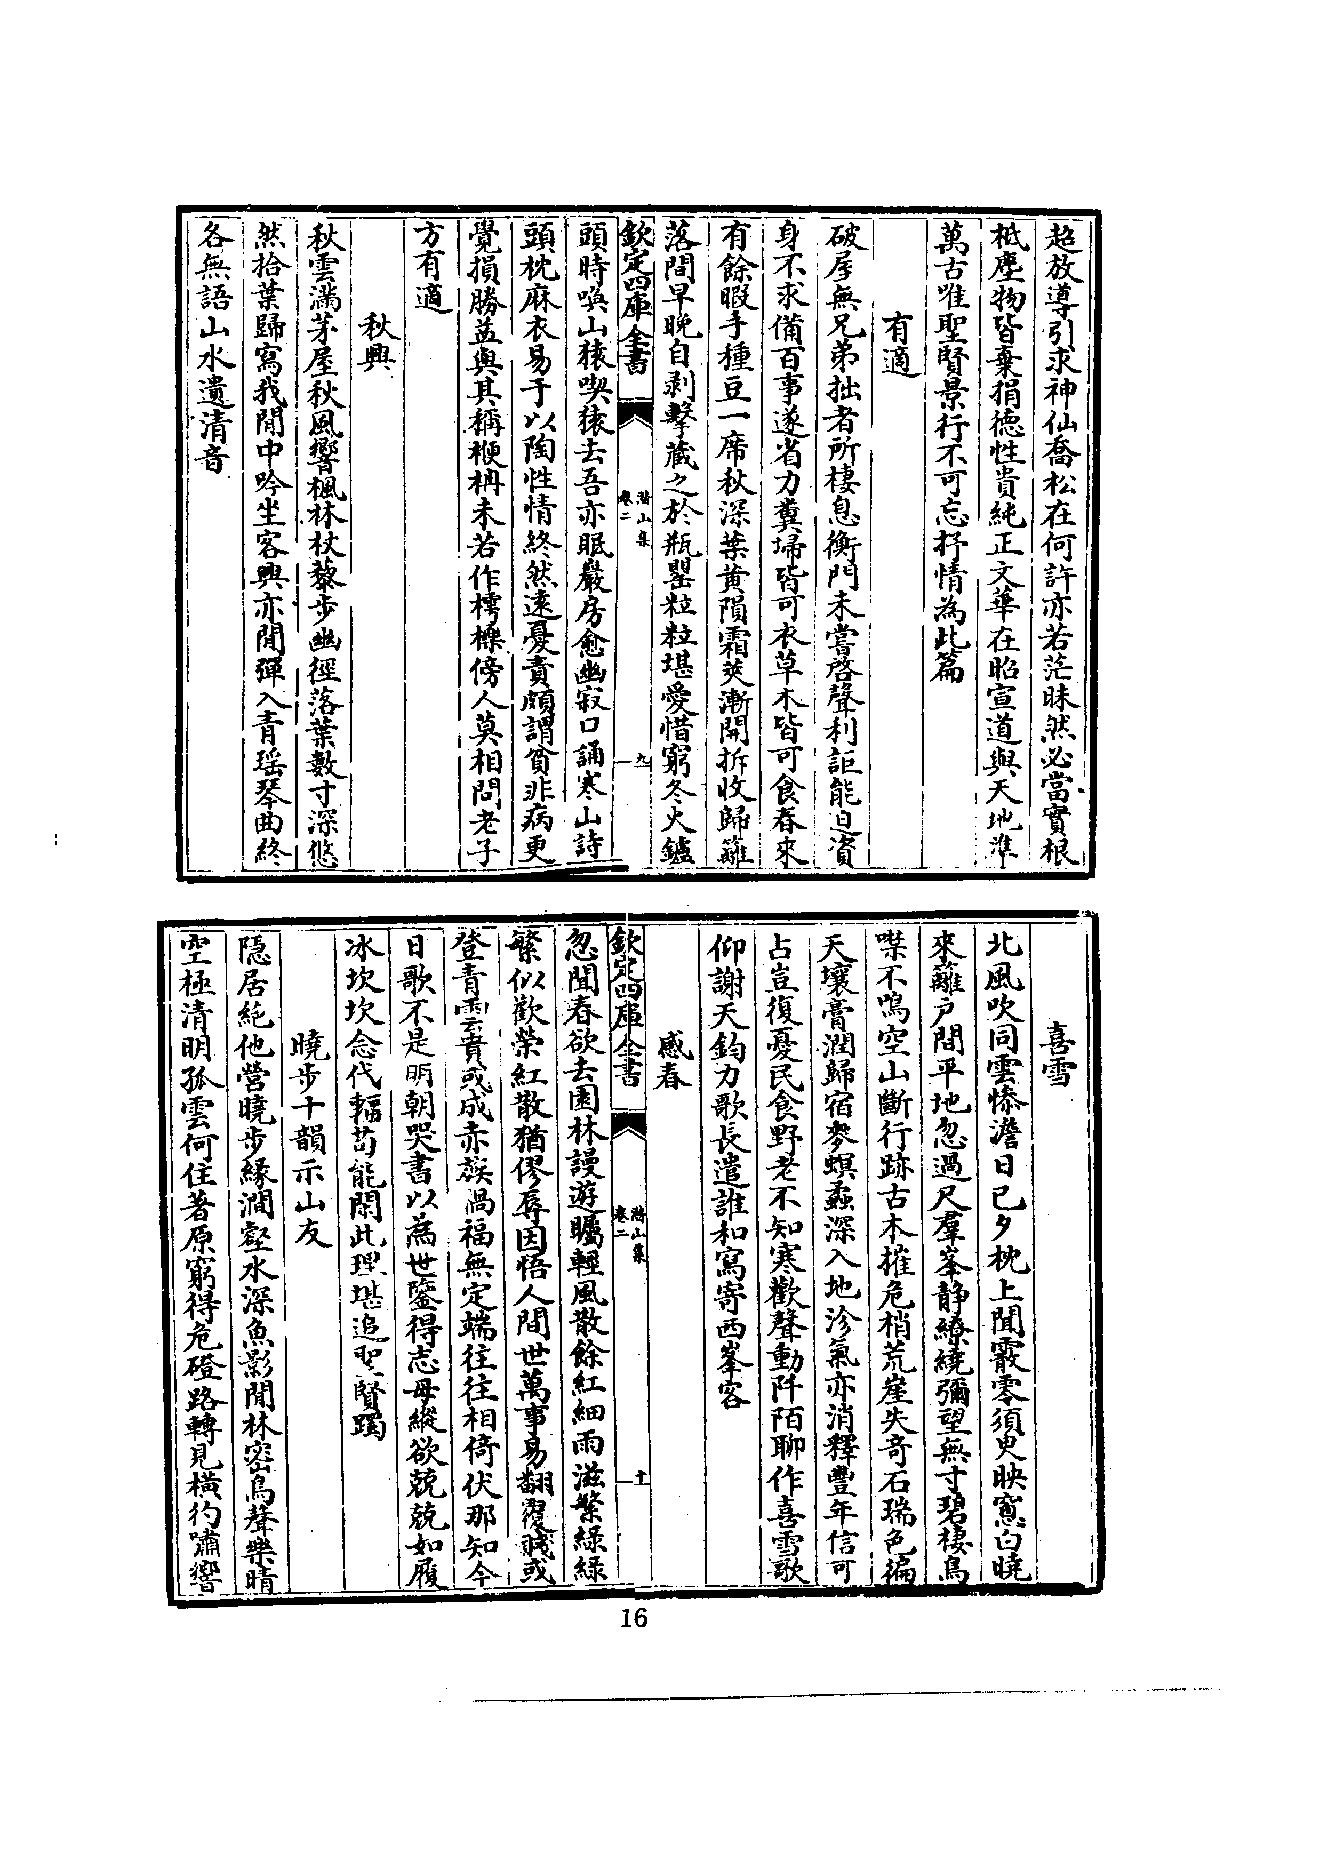 超放導引求神仙喬松在何許亦若茫昧然必當實根
柢塵物皆棄捐德性貴純正文華在昭宣道與天地準
萬古唯聖賢景行不可忘抒情為此篇
有適
破屋無兄弟拙者所棲息衡門未嘗啓聲利詎能迫資
身不求備百事遂省力糞埽皆可衣草木皆可食春來
有餘暇手種豆一席秋深葉黄隕霜莢漸開拆收歸籬
落間早晚自剥擊藏之於瓶罌粒粒堪愛惜窮冬火鑪
欽定四庫全書
潛山集
卷二
九
頭時喚山猿喫猿去吾亦眠巖房愈幽寂口誦寒山詩
頭枕麻衣易于以陶性情終然遠憂責頗謂貧非病更
覺損勝益與其稱楩枏未若作樗櫟傍人莫相問老子
方有適
秋興
秋雲滿茅屋秋風響楓林杖藜步幽徑落葉數寸深悠
然拾葉歸寫我閒中吟坐客興亦閒彈入青瑶琴曲終
各無語山水遺清音
喜雪
北風吹同雲慘澹日已夕枕上聞霰零須臾映窻白曉
來籬戶間平地忽過尺羣峯靜繚繞彌望無寸碧棲烏
噤不鳴空山斷行跡古木摧危梢荒崖失奇石瑞色徧
天壤膏潤歸宿麥螟螽深入地沴氣亦消釋豐年信可
占豈復憂民食野老不知寒歡聲動阡陌聊作喜雪歌
仰謝天鈞力歌長遣誰和寫寄西峯客
感春
欽定四庫全書
潛山集
卷二
十
忽聞春欲去園林謾遊矚輕風散餘紅細雨滋繁綠綠
繁似歡榮紅散猶僇辱因悟人間世萬事易翻覆賤或
登青雲貴或成赤族禍福無定端往往相倚伏那知今
日歌不是明朝哭書以為世鑒得志毋縱欲兢兢如履
冰坎坎念伐輻苟能閑此理堪追聖賢躅
曉步十韻示山友
隱居絶他營曉步緣澗壑水深魚影閒林密鳥聲樂晴
空極清明孤雲何住著原窮得危磴路轉見橫彴嘯響
16